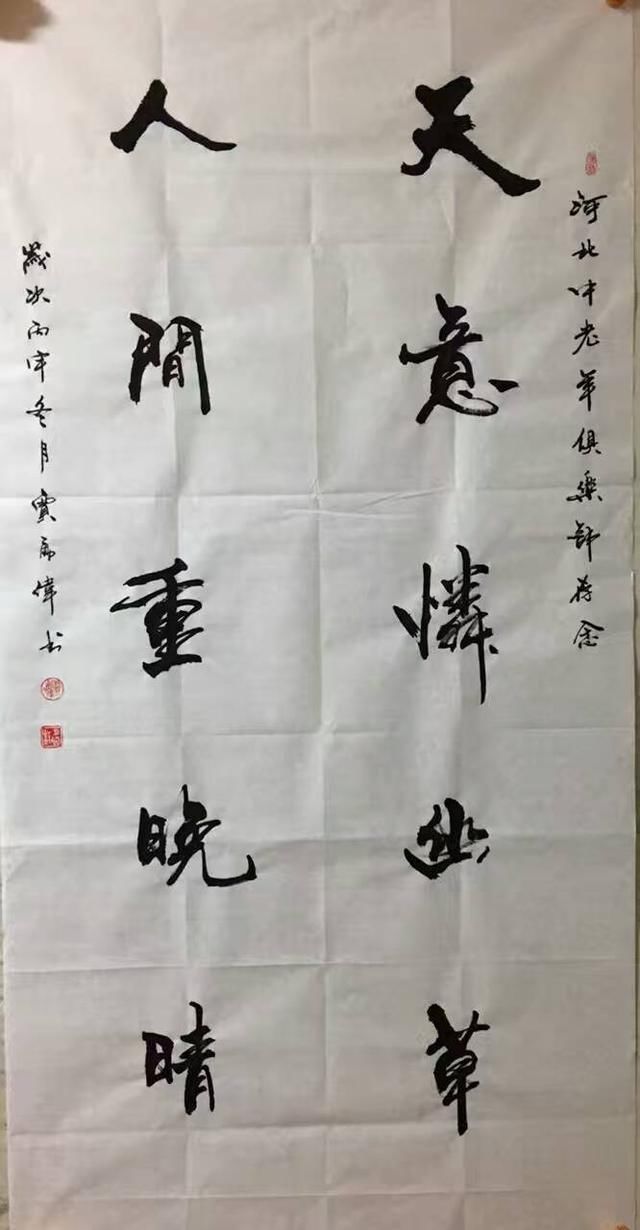 河北中老年俱樂部荐金
天意憐幽草
人間重晚晴
歲次丙申冬月賈偉书